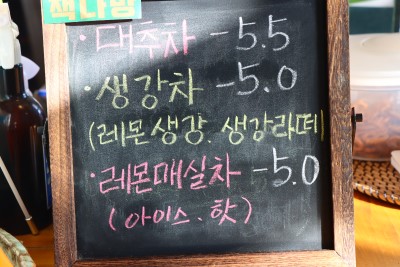 색나땅
· 대추차 - 5.5
· 생강차 - 5.0
(레몬생강. 생강라떼)
· 레몬매실차 - 5.0
(아이스. 핫)